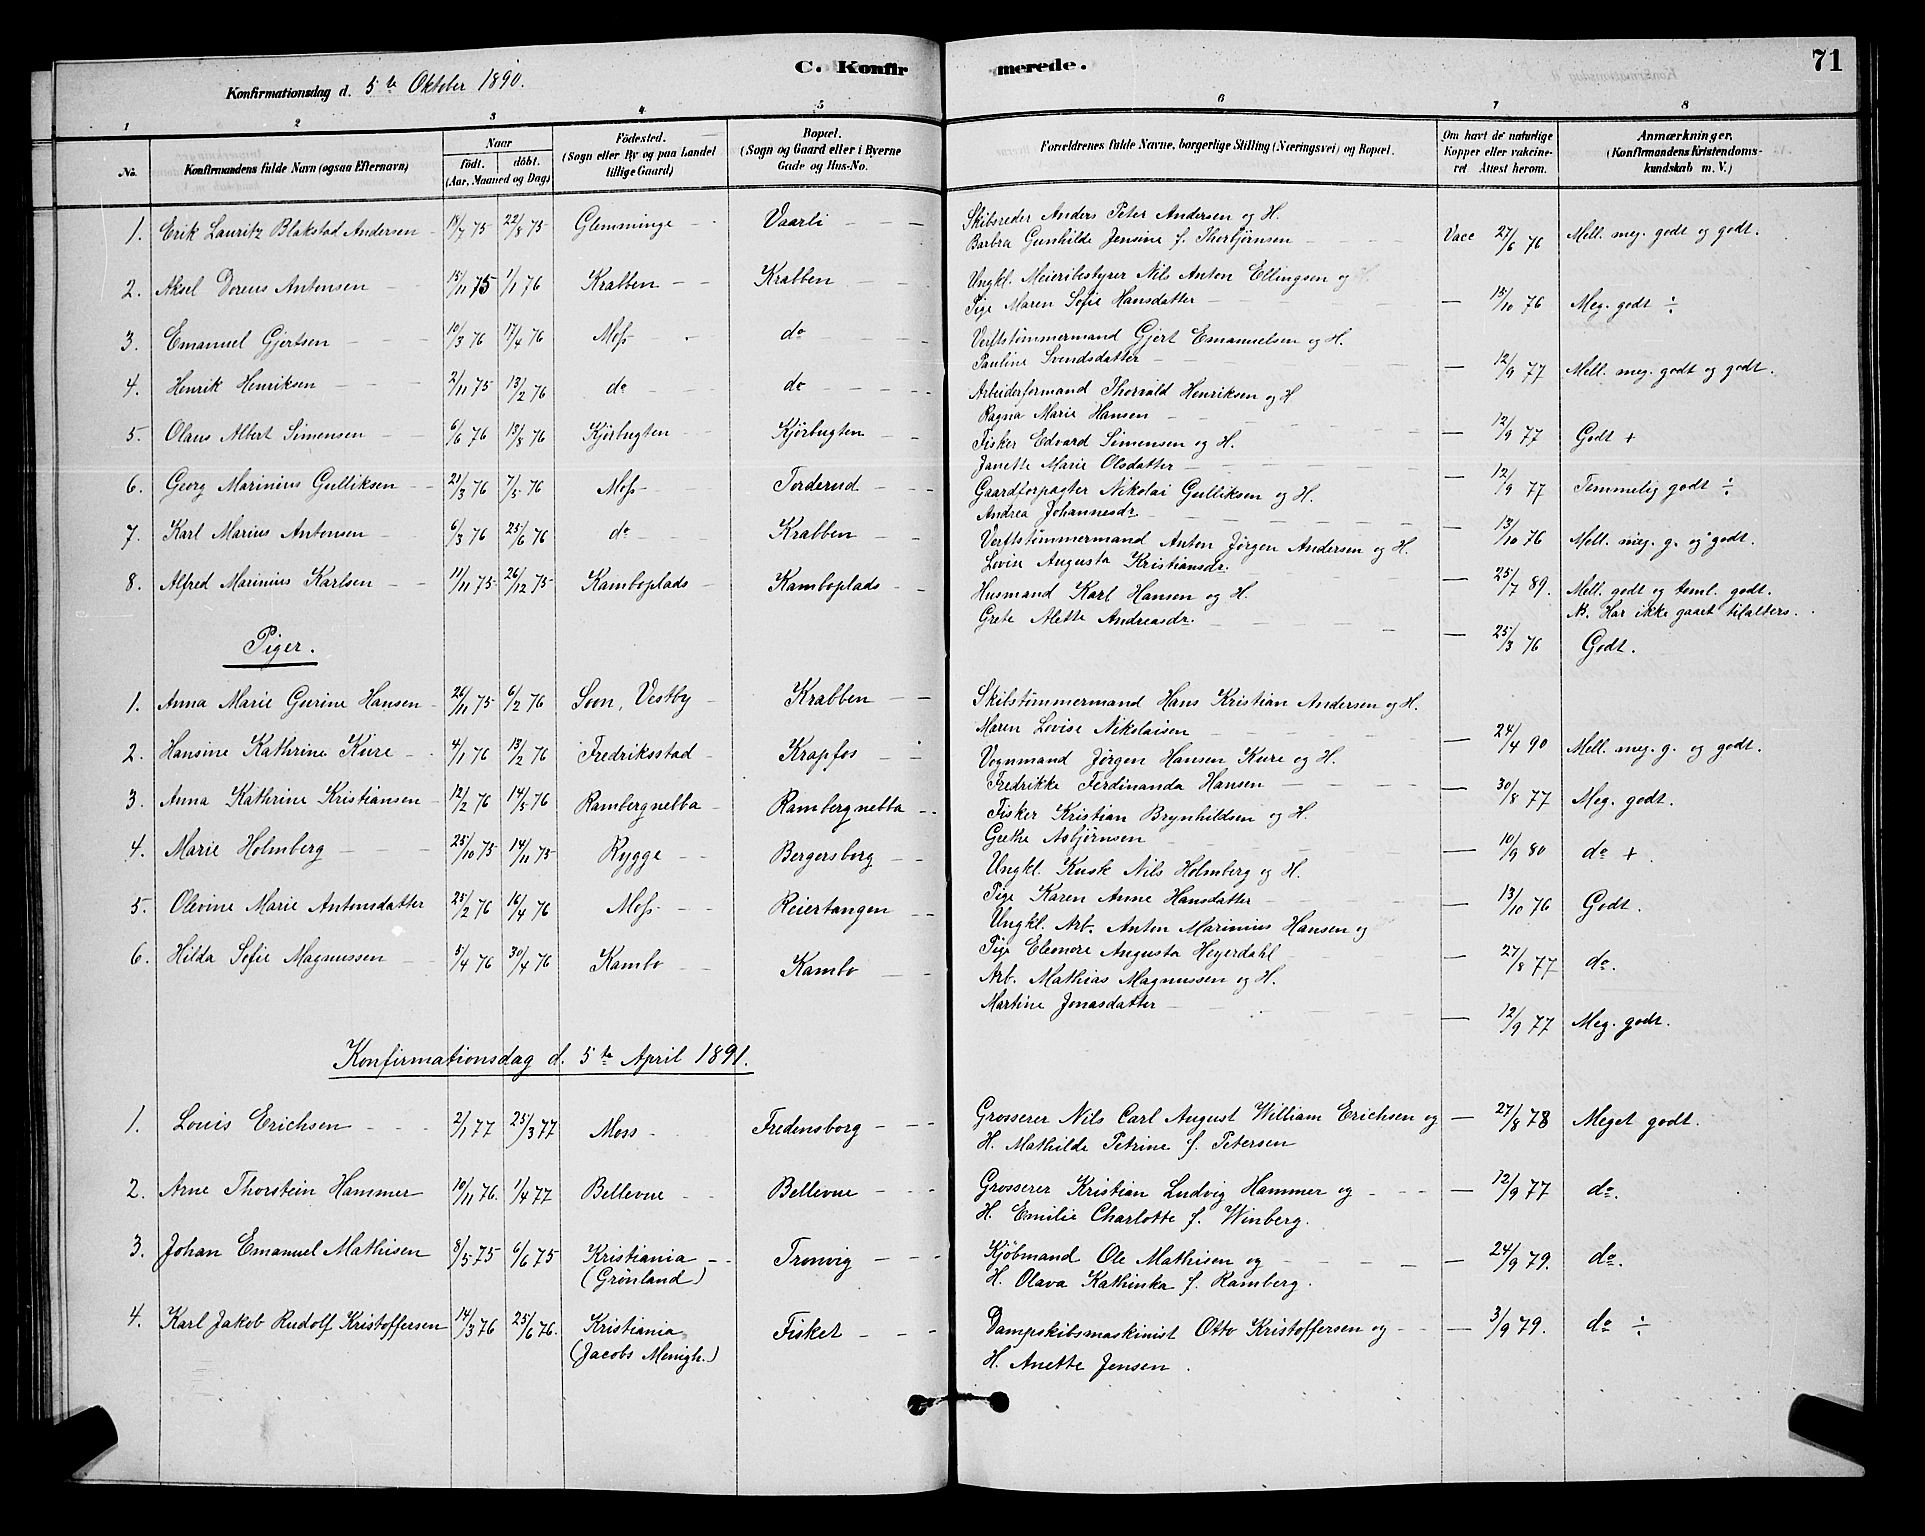 C. Konfirmerede.
71
Konfirmationsdag d. 5te Oktober 1890.
1 2 3 4 5 6 7 8
No. Konfirmandens fulde Navn (ogsaa Efternavn) Naar født. døbt. (Aar, Maaned og Dag) Fødested. (Sogn eller By og paa Landet tillige Gaard) Bopæl. (Sogn og Gaard eller i Byerne Gade og Hus-No. Forældrenes fulde Navne, borgerlige Stilling (Næringsvei) og Bopæl. Om havt de naturlige Kopper eller vakcineret Attest herom. Anmærkninger. (Konfirmandens Kristendomskundskab m. V.)
1. Erik Lauritz Blakstad Andersen 18/7 75 22/8 75 Glemminge Vaarli Skibsreder Anders Peter Andersen og H.
Barbra Gunhilde Jensine f. Thorbjørnsen Vacc 27/6 76 Mell. meg. godt og godt.
2. Aksel Doreus Antonsen 15/11 75 1/1 76 Krabben Krabben Ungkl. Meieribestyrer Nils Anton Ellingsen og
Pige Maren Sofie Hansdatter — 15/10 76 Meg. godt ÷
3. Emanuel Gjertsen 10/3 76 17/4 76 Moss do Verftstømmermand Gjert Emanuelsen og H.
Pauline Svendsdatter — 12/9 77 Mell. meg. godt og godt.
4. Henrik Henriksen 2/11 75 13/2 76 do do Arbeiderformand Thorvald Henriksen og H
Ragna Marie Hansen — 12/9 77 Godt +
5. Olaus Albert Simensen 6/6 76 13/8 76 Kjørbugten Kjørbugten Fisker Edvard Simensen og H.
Janette Marie Olsdatter — 12/9 77 Temmelig godt ÷
6. Georg Marinius Gulliksen 21/3 76 7/5 76 Moss Torderud Gaardforpagter Nikolai Gulliksen og H.
Andrea Johannesdr — 13/10 76 Mell. meg. g. og godt.
7. Karl Marius Antonsen 6/3 76 25/6 76 do Krabben Verftstømmermand Anton Jørgen Andersen og H.
Lovise Augusta Kristiansdr. — 25/7 89. Mell. godt og teml. godt.
N. Har ikke gaaet tilalters.
8. Alfred Marinius Karlsen 11/11 75 26/12 75 Kamboplads Kamboplads Husmand Karl Hansen og H.
Grete Alette Andreasdr. — 25/3 76 Godt.
Piger.
1. Anna Marie Gurine Hansen 26/11 75 6/2 76 Soon, Vestby Krabben Skibstømmermand Hans Kristian Andersen og H.
Maren Lovise Nikolaisen — 24/4 90 Mell. meg. g. og godt.
2. Hansine Kathrine Kure 4/1 76 13/2 76 Fredriksstad Krapfos Vognmand Jørgen Hansen Kure og H.
Fredrikke Ferdinanda Hansen — 30/8 77 Meg. godt.
3. Anna Kathrine Kristiansen 12/2 76 14/5 76 Rambergnebba Rambergnebba Fisker Kristian Brynhildsen og H.
Grethe Asbjørnsen — 10/9 80 do +
4. Marie Holmberg 25/10 75 14/11 75 Rygge Bergersborg Ungkl. Kusk Nils Holmberg og H.
Pige Karen Anne Hansdatter — 13/10 76 Godt.
5. Olivine Marie Antonsdatter 25/2 76 16/4 76 Moss Reiertangen Ungkl. Arb. Anton Marinius Hansen og
Pige Eleonore Augusta Heyerdahl — 27/8 77 do.
6. Hilda Sofie Magnussen 5/4 76 30/4 76 Kambo Kambo Arb. Mathias Magnussen og H.
Martine Jonasdatter — 12/9 77 Meg. godt.
Konfirmationsdag d. 5te April 1891.
1. Louis Erichsen 2/1 77 25/3 77 Moss Fredensborg Grosserer Nils Carl August William Erichsen og — 27/8 78 Meget godt.
H. Mathilde Petrine f. Petersen
2. Arne Thorstein Hammer 10/11 76. 1/4 77 Bellevue Bellevue Grosserer Kristian Ludvig Hammer og — 12/9 77 do.
H. Emilie Charlotte f. Winberg.
3. Johan Emanuel Mathisen 8/5 75 6/6 75 Kristiania Tronvig Kjøbmand Ole Mathisen og — 24/9 79. do.
(Grønland) H. Olava Kathinka f. Ramberg.
4. Karl Jakob Rudolf Kristoffersen 14/3 76 25/6 76. Kristiania Fisket Dampskibsmaskinist Otto Kristoffersen og — 3/9 79. do ÷
(Jacobs Menigh.) H. Anette Jensen.